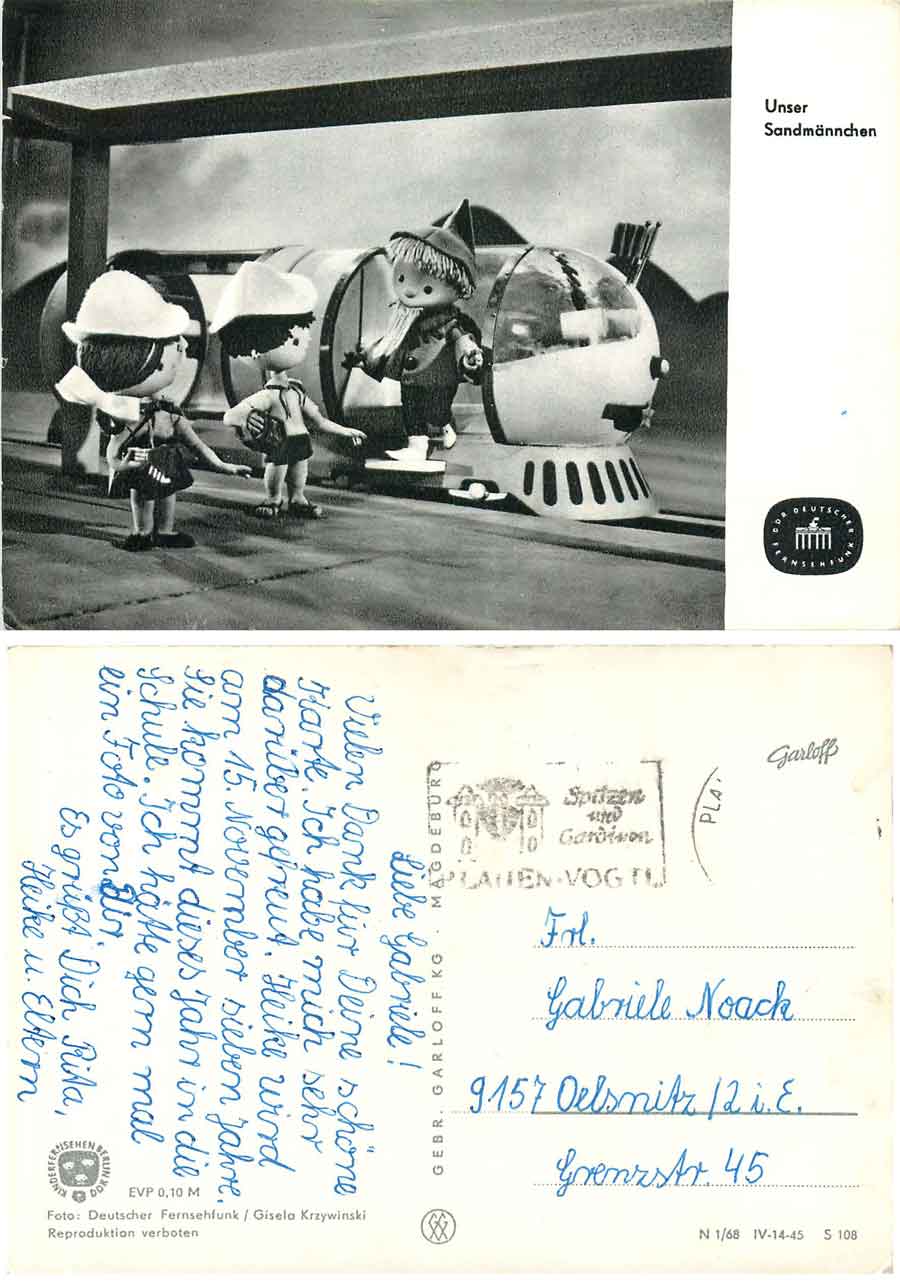 Unser
Sandmännchen
DDR DEUTSCHER
FERNSEHFUNK
Liebe Gabriele!
Vielen Dank für Deine schöne
Karte. Ich habe mich sehr
darüber gefreut. Heike wird
am 15. November sieben Jahre.
Sie kommt dieses Jahr in die
Schule. Ich hätte gern mal
ein Foto von Dir
Es grüßt Dich Rita,
Heike u. Eltern
KINDERFERNSEHEN BERLIN
DDR
EVP 0,10 M
Foto: Deutscher Fernsehfunk / Gisela Krzywinski
Reproduktion verboten
GEBR. GARLOFF KG · MAGDEBURG
Garloff
Spitzen
und
Gardinen
PLAUEN-VOGTL
PLA
Frl.
Gabriele Noack
9157 Oelsnitz/2 i. E.
Grenzstr. 45
N 1/68 IV-14-45 S 108